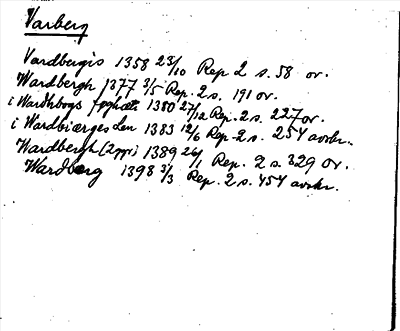 Varberg
Vardbergis 1358 23/10 Rep 2 s. 58 or.
Wardbergh 1377 3/5 Rep. 2 s. 191 or.
i Wardhbogs foghæti 1380 27/12 Rep. 2 s. 227 or.
i Wardbiærges Len 1383 12/6 Rep. 2 s. 254 avskr.
Wardbergh (2 ggr) 1389 26/1 Rep. 2 s. 329 or.
Wardberg 1398 3/3 Rep. 2 s. 454 avskr.